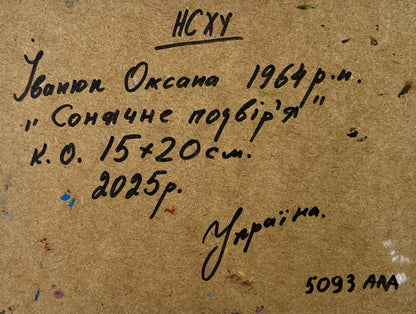 НСХУ
Іванюк Оксана 1964 р.н.
„Сонячне подвір'я"
к. о. 15×20 см.
2025р.
Україна.
5093 ARA